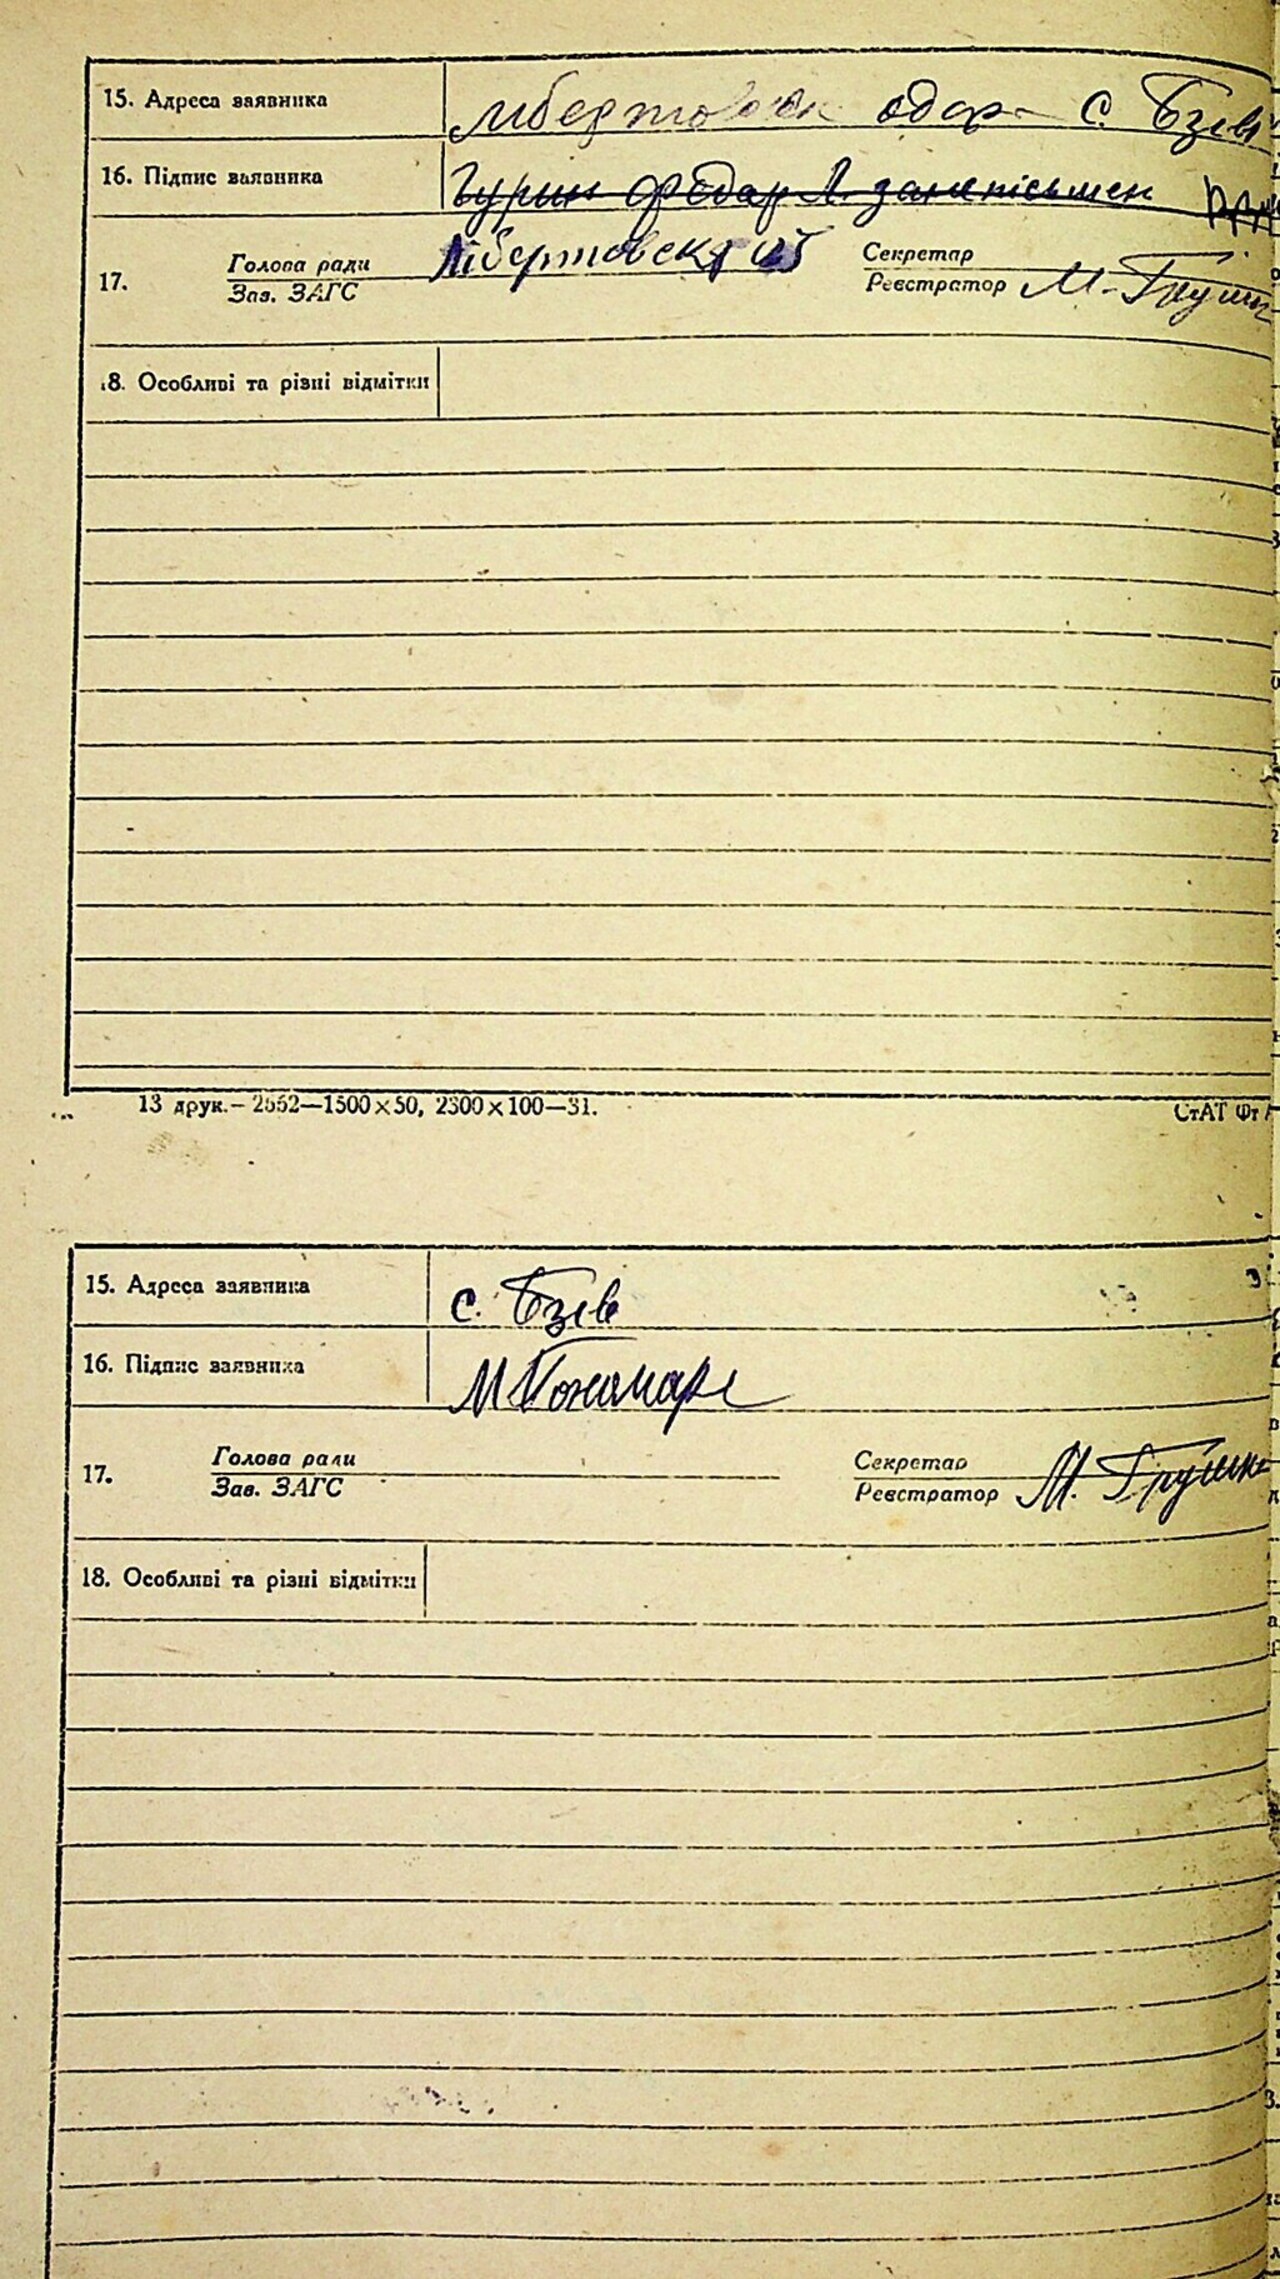 15. Адреса заявника с. Бзів
16. Підпис заявника
17. Голова ради Лібертовский Секретар
Зав. ЗАГС Реєстратор М.
18. Особливі та різні відмітки
13 друк.- 2552—1500×50, 2300×100—31. СтАТ Фт
15. Адреса заявника с. Бзів
16. Підпис заявника М Пономаре
17. Голова ради Секретар
Зав. ЗАГС Реєстратор М.
18. Особливі та різні відмітки